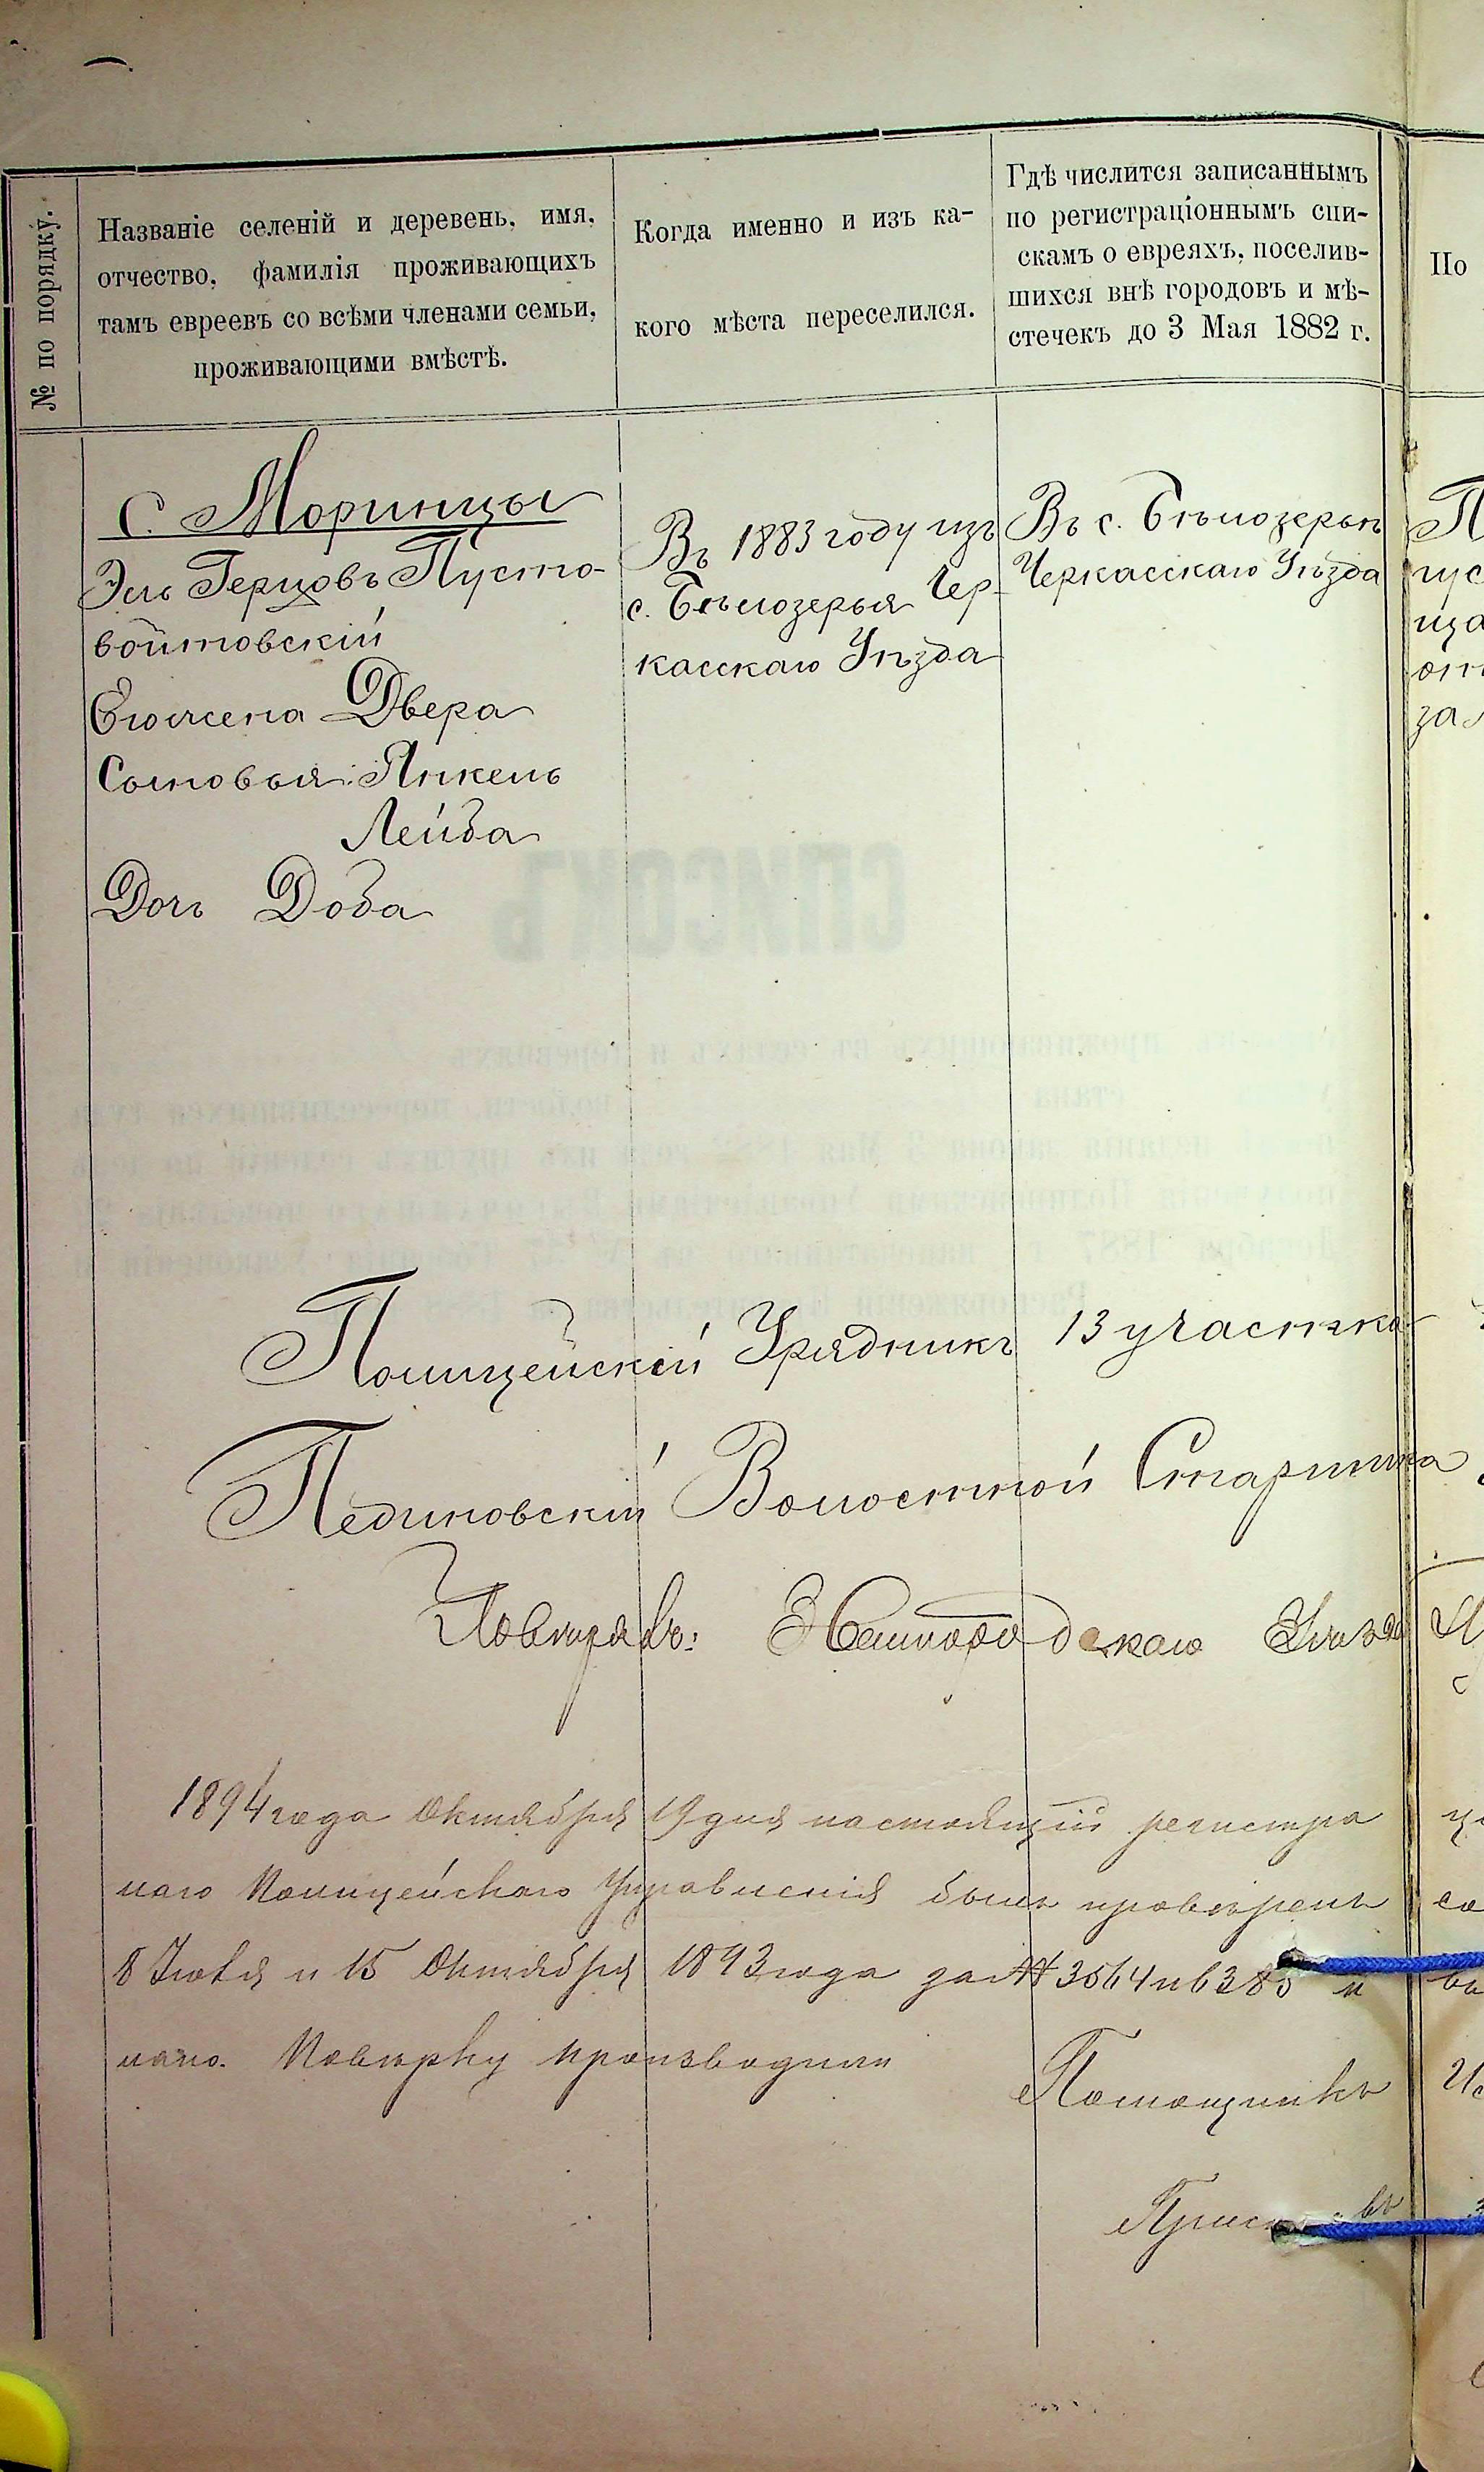 № по порядку.
Названіе селеній и деревень, имя,
отчество, фамилія проживающихъ
тамъ евреевъ со всѣми членами семьи,
проживающими вмѣстѣ.
Когда именно и изъ ка-
кого мѣста переселился.
Гдѣ числится записаннымъ
по регистраціоннымъ спи-
скамъ о евреяхъ, поселив-
шихся внѣ городовъ и мѣ-
стечекъ до 3 Мая 1882 г.
По
С. Моринцы
Эль Герцовъ Пусто-
войтовскій
Его жена Двера
Сыновья: Янкель
Лейба
Дочь Доба
Въ 1883 году изъ
с. Бѣлозерья Чер-
касскаго Уѣзда
Въ с. Бѣлозерьѣ
Черкасскаго Уѣзда
Полицейскій Урядникъ 13 участка
Пединовскій Волостной Старшина
Повѣрялъ: Звенигородскаго Уѣзда
1894 года Октября 19 дня настоящій регистра
наго Полицейскаго Управленія былъ провѣренъ
8 Іюля и 15 Октября 1893 года за № 3564 и 6385 и
Повѣрку производили
Помощникъ